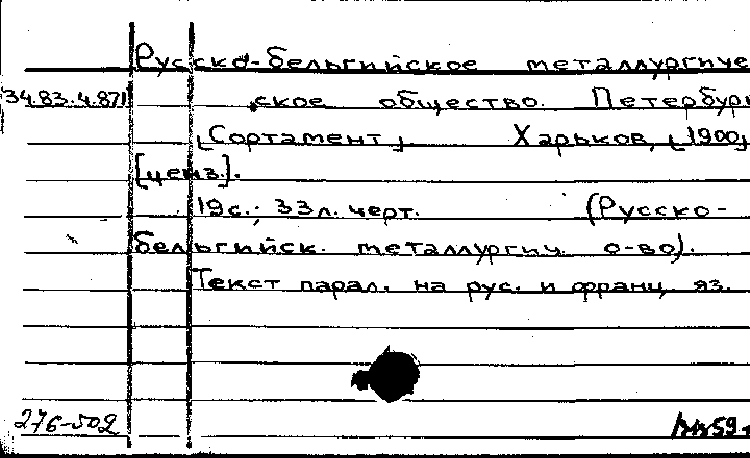 Русско-бельгийское металлургиче
34.83.4.871 ское общество. Петербург
[Сортамент] Харьков, [1900]
[ценз.].
19с.; 33л. черт. (Русско-
бельгийск. металлургич. о-во).
Текст парал. на рус. и франц. яз.
276-502